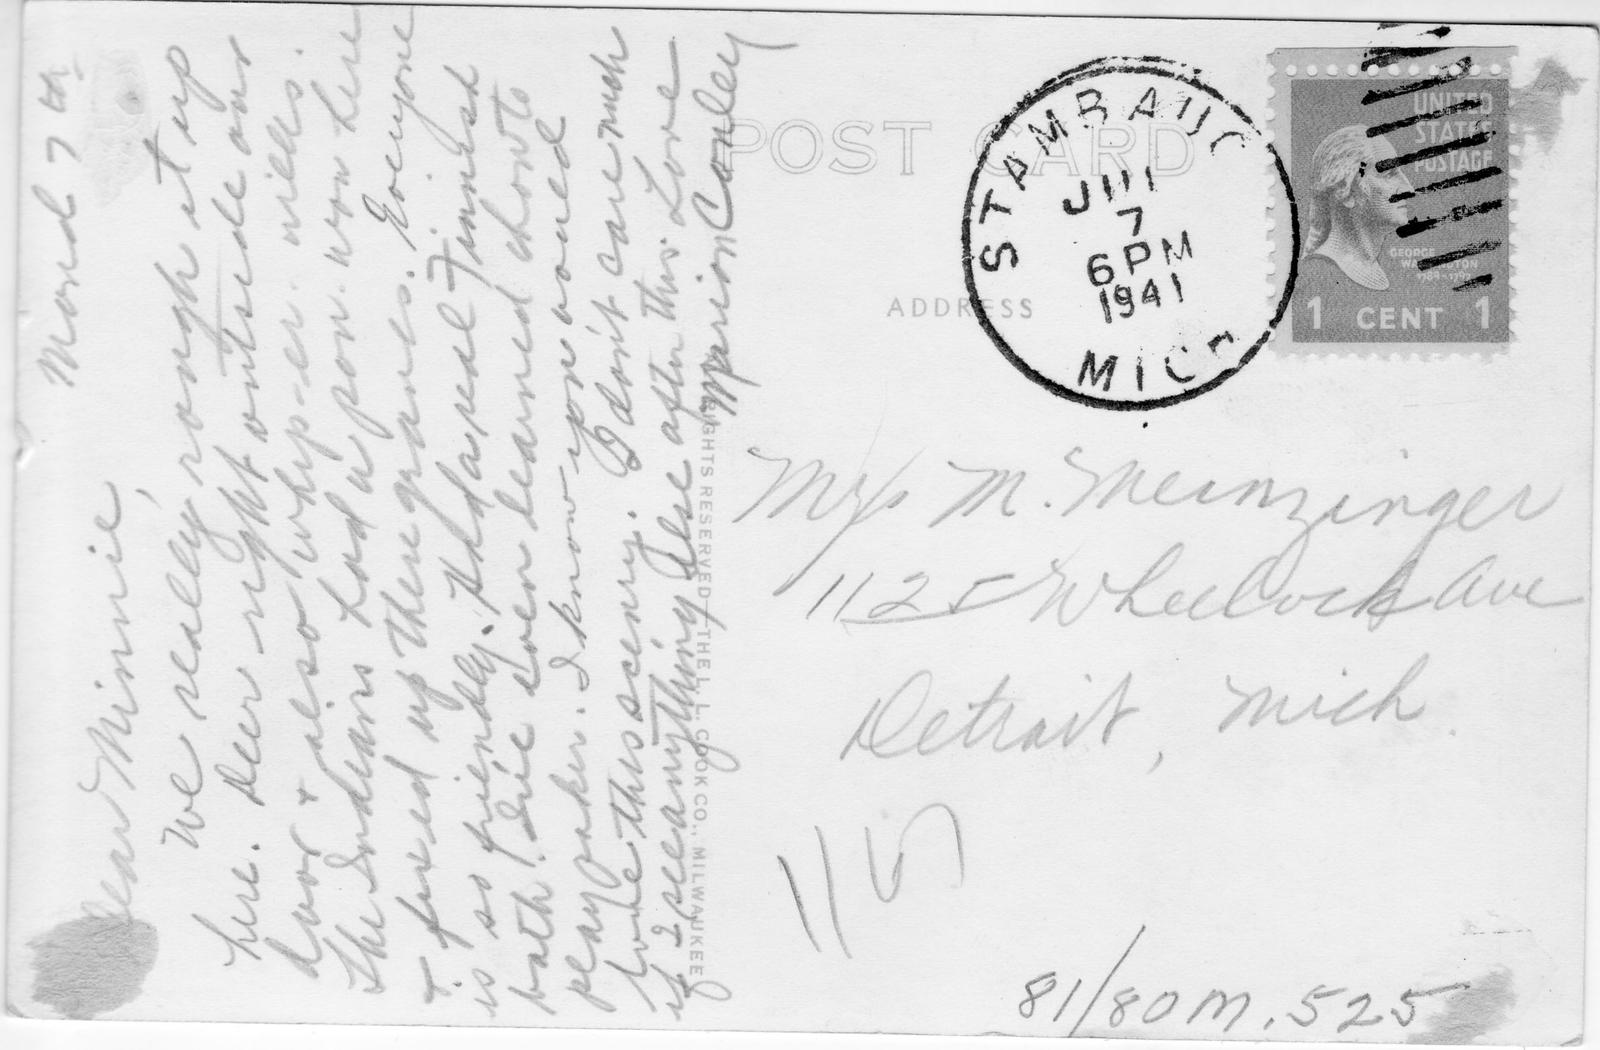 Mond 7th
Dear Minnie,
We really rough it up
here. Deer right outside our
door & also whip-er-wills.
The Indians had a pow-wow here
& fixed up there graves. Everyone
is so friendly. Had a real Finnish
bath! I've even learned how to
play poker. I know you would
love this scenery. I don't care much
if I see anything else after this. Love
Marion Conley
POST CARD
ADDRESS
RIGHTS RESERVED—THE L. L. COOK CO., MILWAUKEE
STAMBAUG
JUL
7
6 PM
1941
MICH
UNITED
STATES
POSTAGE
GEORGE
WASHINGTON
1789-1797
1 CENT 1
Mrs M. Meinzinger
1125 Wheelock Ave
Detroit, Mich.
115
81/80M.525